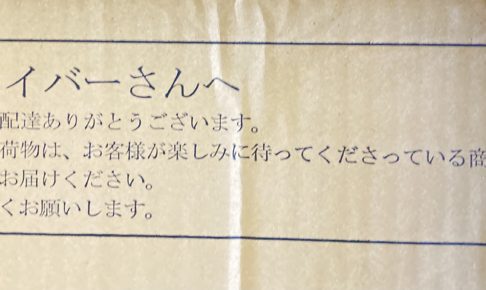 イバーさんへ
配達ありがとうございます。
荷物は、お客様が楽しみに待ってくださっている商
お届けください。
くお願いします。